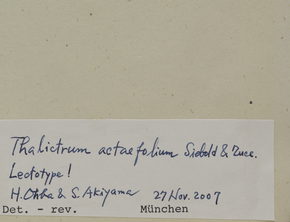 Thalictrum actaefolium Siebold & Zucc.
Lectotype!
H. Ohba & S. Akiyama 27 Nov. 2007
Det. - rev. München